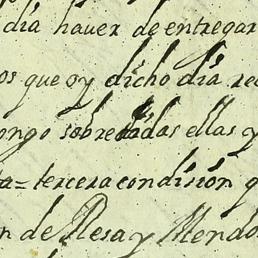 dia haver de entregar
os que oy dicho dia re
ongo sobre dadas ellas y
ta = tercera condision q
n de Resa y Mendo